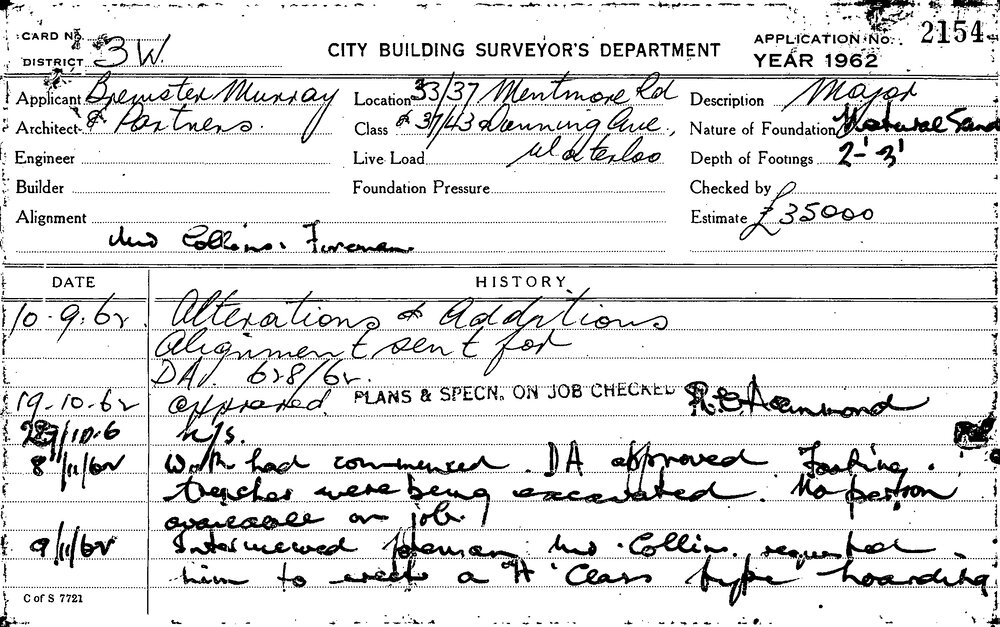 CARD No. CITY BUILDING SURVEYOR'S DEPARTMENT APPLICATION No. 2154
DISTRICT 3W. YEAR 1962
Applicant Brewster Murray Location 33/37 Mentmore Rd Description Major
Architect & Partners. Class & 37/43 Dunning Ave., Nature of Foundation Natural Sand
Engineer Live Load Waterloo Depth of Footings 2'-3'
Builder Foundation Pressure Checked by
Alignment Estimate £35000
Collins. Foreman
DATE HISTORY
10.9.62. Alterations & Additions
Alignment sent for
DA. 628/62.
19-10-62 approved. PLANS & SPECN. ON JOB CHECKED Hammond
/10.6 n/s.
8/11/62 Work had commenced. DA approved Footing
trenches were being excavated. No person
available on job.
9/11/62 Interviewed foreman Collins. requested
him to erect a "A" Class type hoarding
C of S 7721